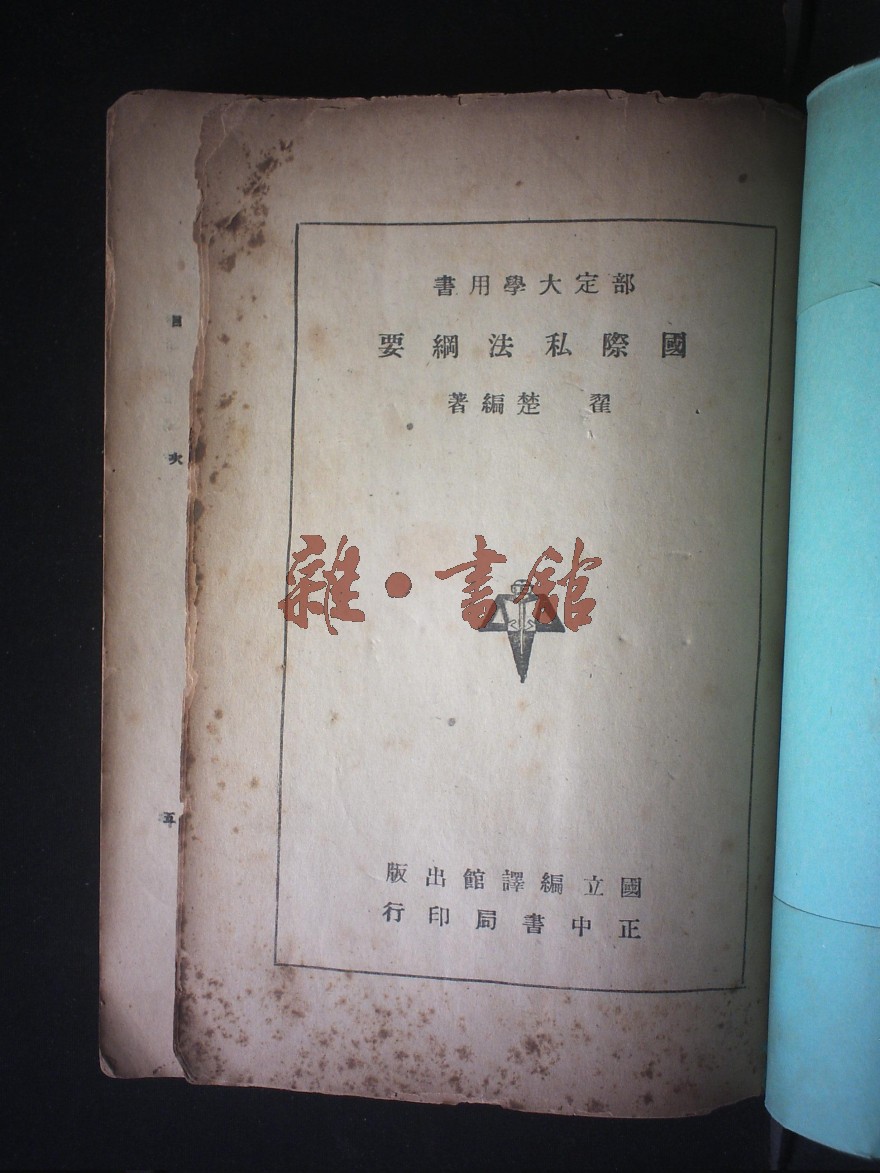 部定大學用書
國際私法綱要
翟楚編著
雜·書館
國立編譯館出版
正中書局印行
目
次
五